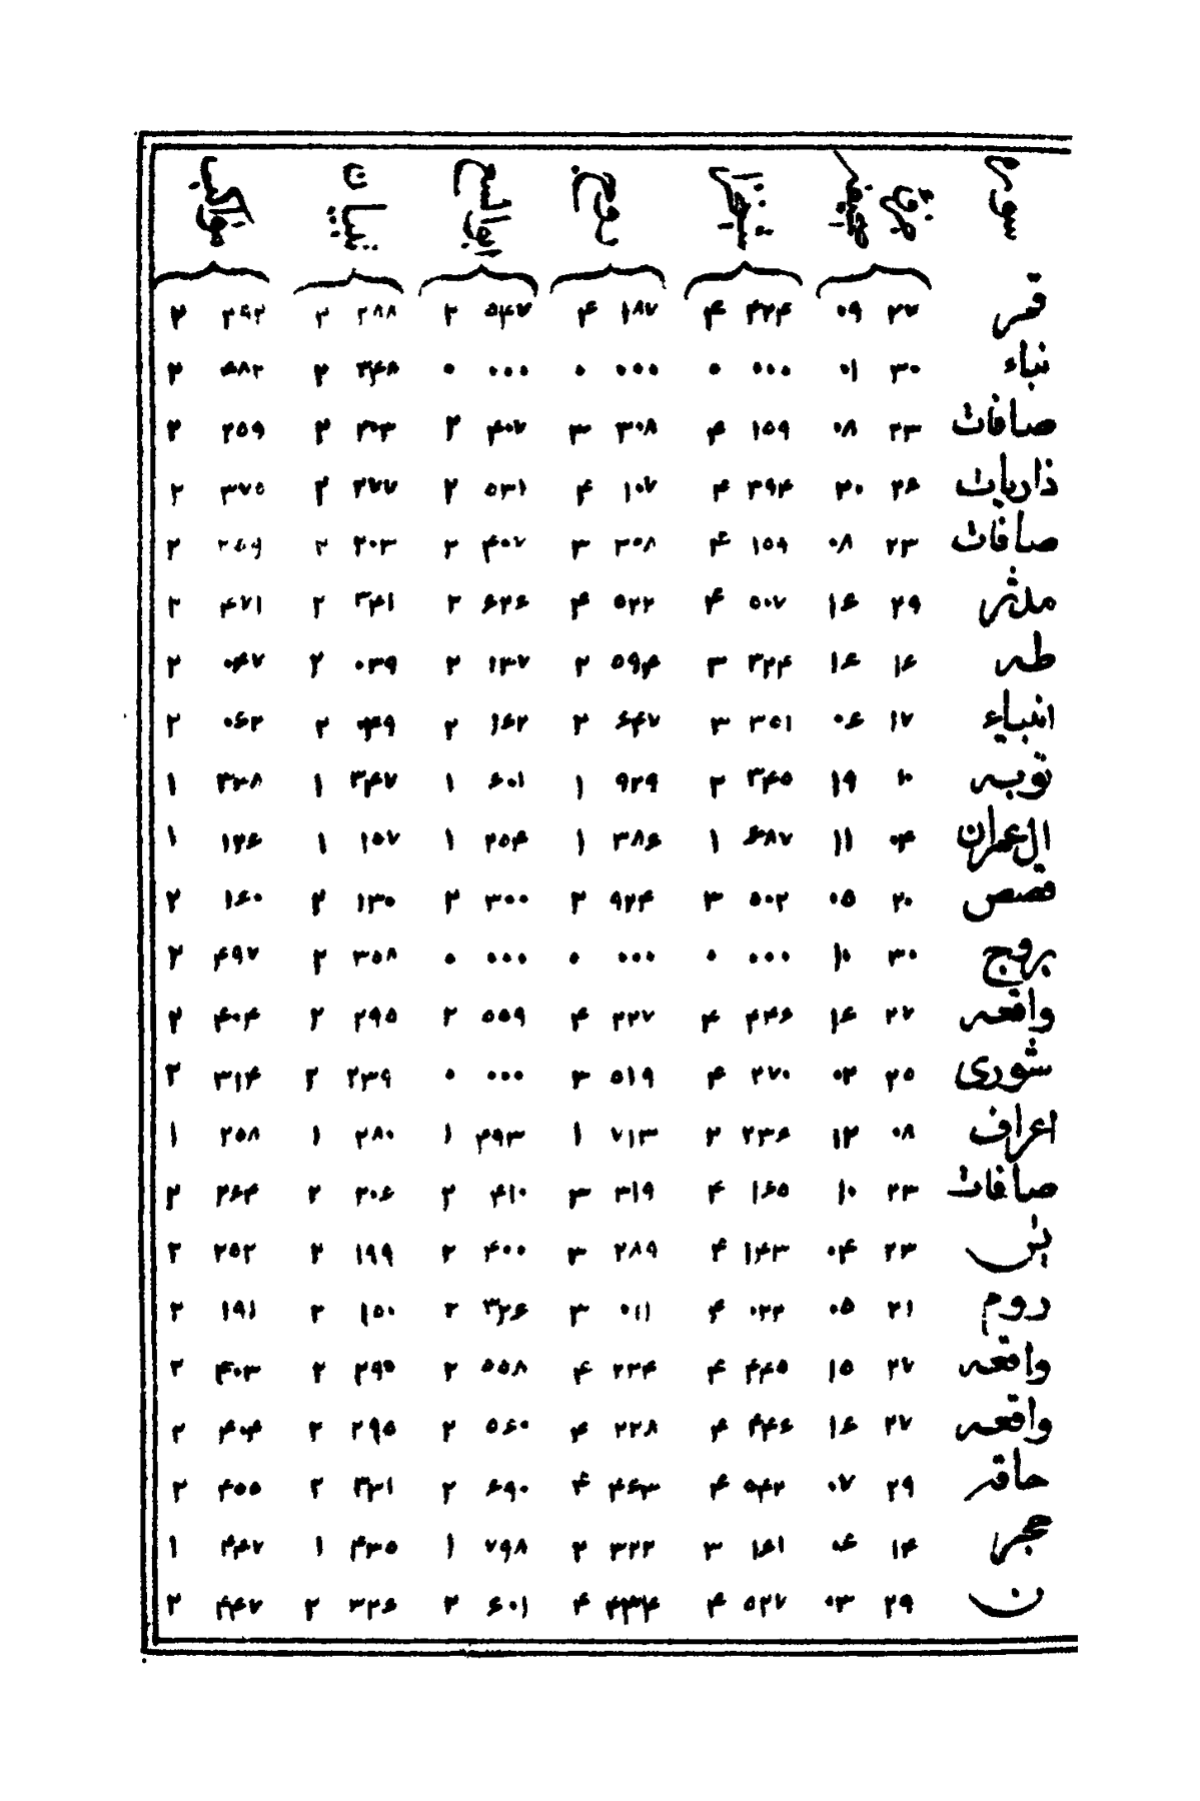 سوره
قمر ۲۷ ۰۹ ۴۲۴ ۴ ۱۸۷ ۴ ۵۴۷ ۲ ۲۸۸ ۲ ۳۹۲ ۲
نباء ۳۰ ۰۱ ۰۰۰ ۰ ۰۰۰ ۰ ۰۰۰ ۰ ۳۴۸ ۲ ۴۸۲ ۲
صافات ۲۳ ۰۸ ۱۵۹ ۴ ۳۰۸ ۳ ۴۰۷ ۲ ۲۰۳ ۲ ۲۵۹ ۲
ذاریات ۲۶ ۲۰ ۳۹۴ ۴ ۱۰۷ ۴ ۵۳۱ ۲ ۲۷۷ ۲ ۳۷۵ ۲
صافات ۲۳ ۰۸ ۱۵۹ ۴ ۳۰۸ ۳ ۴۰۷ ۲ ۲۰۳ ۲ ۲۵۹ ۲
مدثر ۲۹ ۱۶ ۵۰۷ ۴ ۵۲۲ ۴ ۶۲۶ ۲ ۳۴۱ ۲ ۴۷۱ ۲
طه ۱۶ ۱۶ ۳۲۴ ۳ ۵۹۴ ۲ ۱۳۷ ۲ ۰۳۹ ۲ ۰۴۷ ۲
انبیاء ۱۷ ۰۶ ۳۵۱ ۳ ۶۴۷ ۲ ۱۶۲ ۲ ۰۴۹ ۲ ۰۶۲ ۲
توبه ۱۰ ۱۹ ۳۴۵ ۲ ۹۲۹ ۱ ۶۰۱ ۱ ۳۴۷ ۱ ۳۲۸ ۱
ال عمران ۰۴ ۱۱ ۶۸۷ ۱ ۳۸۶ ۱ ۲۵۴ ۱ ۱۵۷ ۱ ۱۲۶ ۱
قصص ۲۰ ۰۵ ۵۰۲ ۳ ۹۲۴ ۲ ۳۰۰ ۲ ۱۳۰ ۲ ۱۶۰ ۲
بروج ۳۰ ۱۰ ۰۰۰ ۰ ۰۰۰ ۰ ۰۰۰ ۰ ۳۵۸ ۲ ۴۹۷ ۲
واقعه ۲۷ ۱۶ ۴۴۶ ۴ ۲۲۷ ۴ ۵۵۹ ۲ ۲۹۵ ۲ ۴۰۴ ۲
شوری ۲۵ ۰۲ ۲۷۰ ۴ ۵۱۹ ۳ ۰۰۰ ۰ ۲۳۹ ۲ ۳۱۴ ۲
اعراف ۰۸ ۱۲ ۲۳۶ ۲ ۷۱۳ ۱ ۴۹۳ ۱ ۲۸۰ ۱ ۲۵۸ ۱
صافات ۲۳ ۱۰ ۱۶۵ ۴ ۳۱۹ ۳ ۴۱۰ ۲ ۲۰۶ ۲ ۲۶۴ ۲
یس ۲۳ ۰۴ ۱۴۳ ۴ ۲۸۹ ۳ ۴۰۰ ۲ ۱۹۹ ۲ ۲۵۲ ۲
روم ۲۱ ۰۵ ۰۲۲ ۴ ۰۱۱ ۳ ۳۲۶ ۲ ۱۵۰ ۲ ۱۹۱ ۲
واقعه ۲۷ ۱۵ ۴۴۵ ۴ ۲۲۴ ۴ ۵۵۸ ۲ ۲۹۵ ۲ ۴۰۳ ۲
واقعه ۲۷ ۱۶ ۴۴۶ ۴ ۲۲۸ ۴ ۵۶۰ ۲ ۲۹۵ ۲ ۴۰۴ ۲
حاقه ۲۹ ۰۷ ۵۴۲ ۴ ۴۶۳ ۴ ۶۹۰ ۲ ۳۳۱ ۲ ۴۵۵ ۲
حجر ۱۴ ۰۶ ۱۶۱ ۳ ۳۲۲ ۲ ۷۹۸ ۱ ۴۳۵ ۱ ۴۴۷ ۱
ن ۲۹ ۰۳ ۵۲۷ ۴ ۴۳۴ ۴ ۶۰۱ ۲ ۳۲۶ ۲ ۴۴۷ ۲